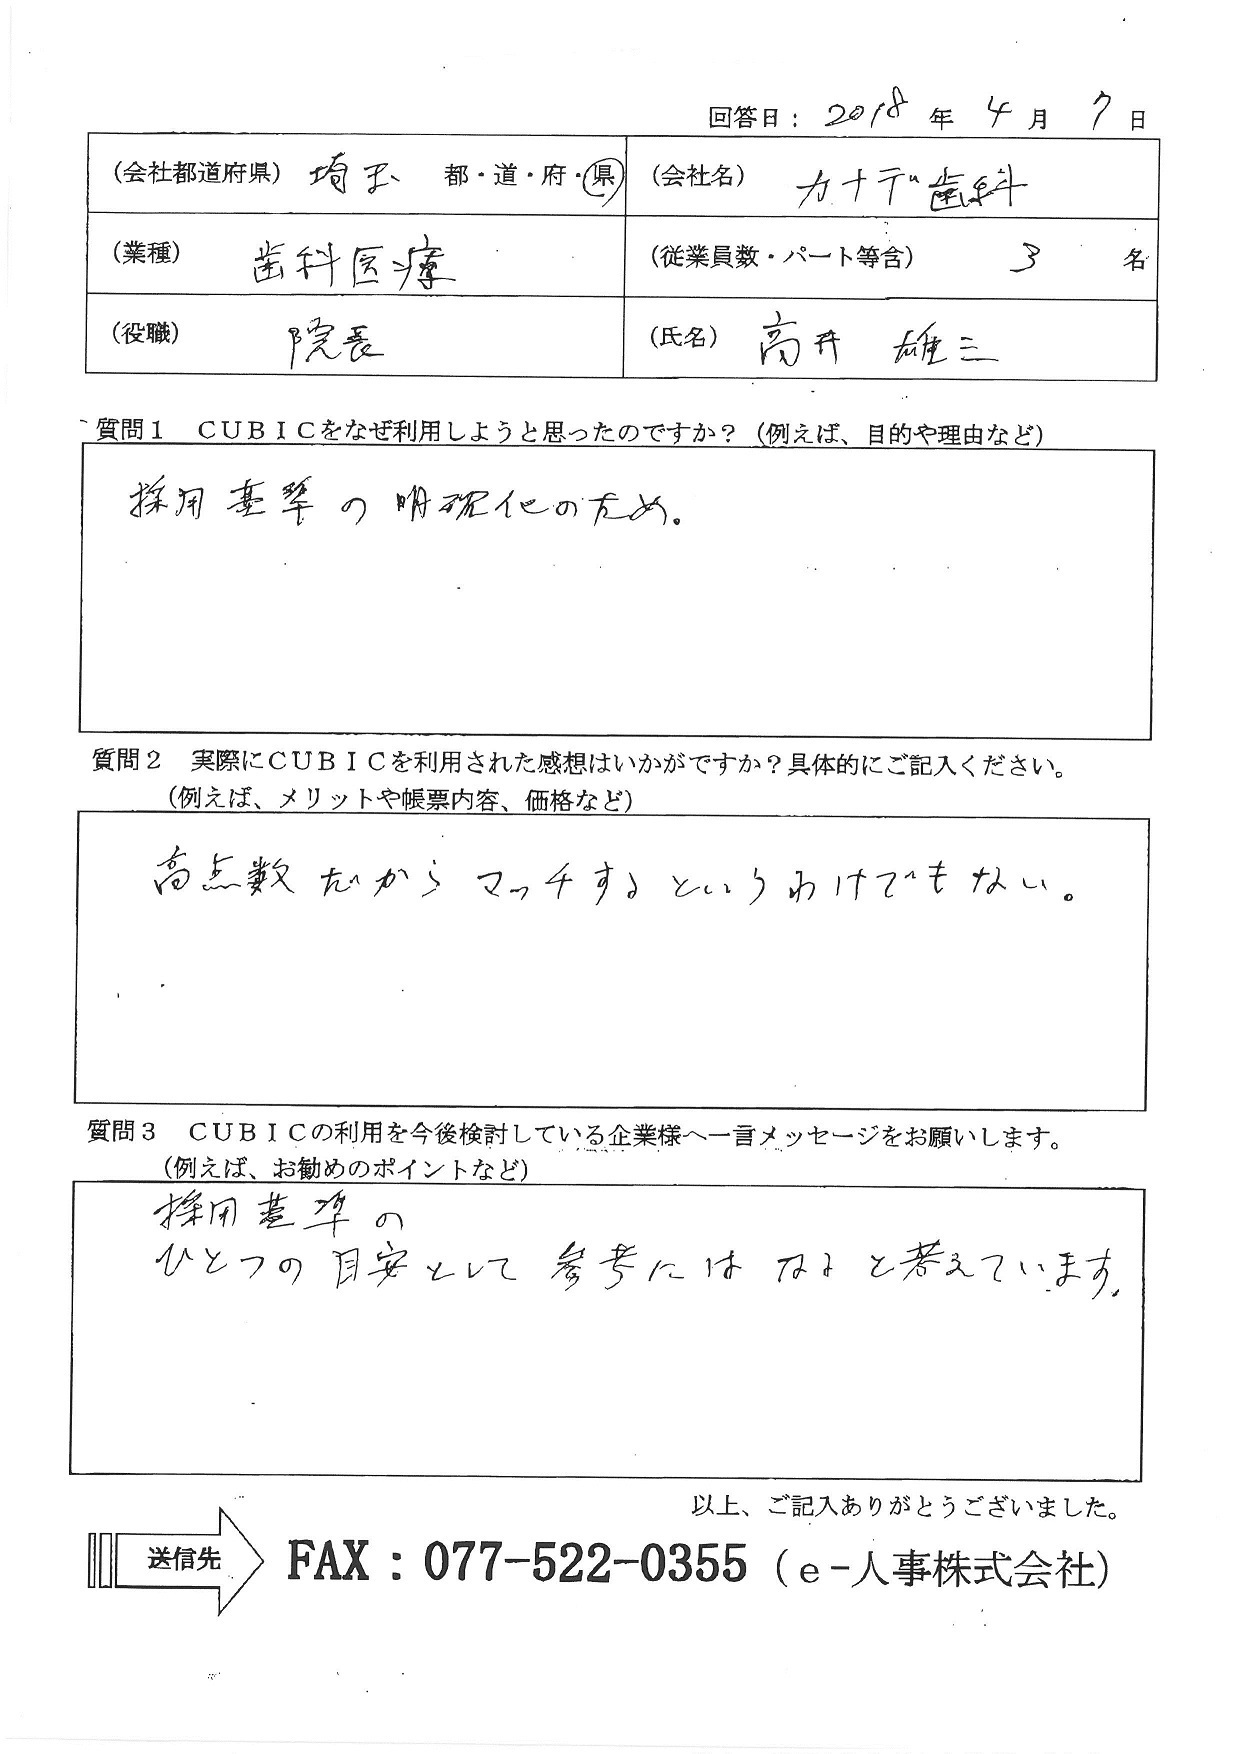 回答日： 2018 年 4 月 7 日
(会社都道府県) 埼玉 都・道・府・県 (会社名) カナデ歯科
(業種) 歯科医療 (従業員数・パート等含) 3 名
(役職) 院長 (氏名) 高井 雄三
質問１ ＣＵＢＩＣをなぜ利用しようと思ったのですか？（例えば、目的や理由など）
採用基準の明確化のため。
質問２ 実際にＣＵＢＩＣを利用された感想はいかがですか？具体的にご記入ください。
（例えば、メリットや帳票内容、価格など）
高点数だからマッチするというわけでもない。
質問３ ＣＵＢＩＣの利用を今後検討している企業様へ一言メッセージをお願いします。
（例えば、お勧めのポイントなど）
採用基準の
ひとつの目安として参考にはなると考えています。
以上、ご記入ありがとうございました。
送信先 FAX：077-522-0355（ｅ-人事株式会社）